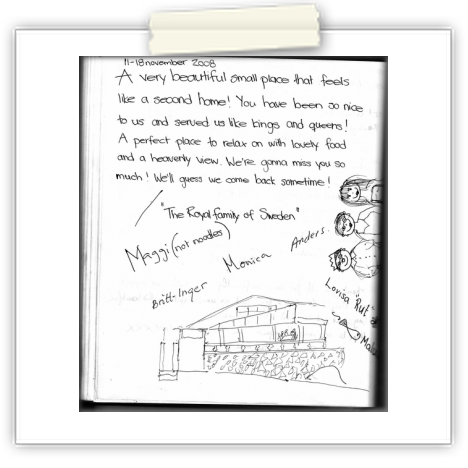 11-18 november 2008
A very beautiful small place that feels
like a second home! You have been so nice
to us and served us like kings and queens!
A perfect place to relax on with lovely food
and a heavenly view. We're gonna miss you so
much! We'll guess we come back sometime!
"The Royal family of Sweden"
Maggi (not noodles)
Monica
Anders..
Britt-Inger
Lovisa "Rut"